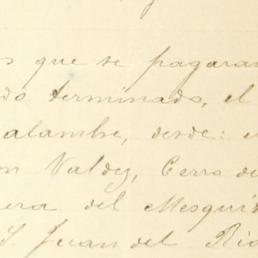 s que se pagaran
do terminado, el
alambre, desde: e
n Valdez, Cerro de
era del Mesquit
S. Juan del Rio